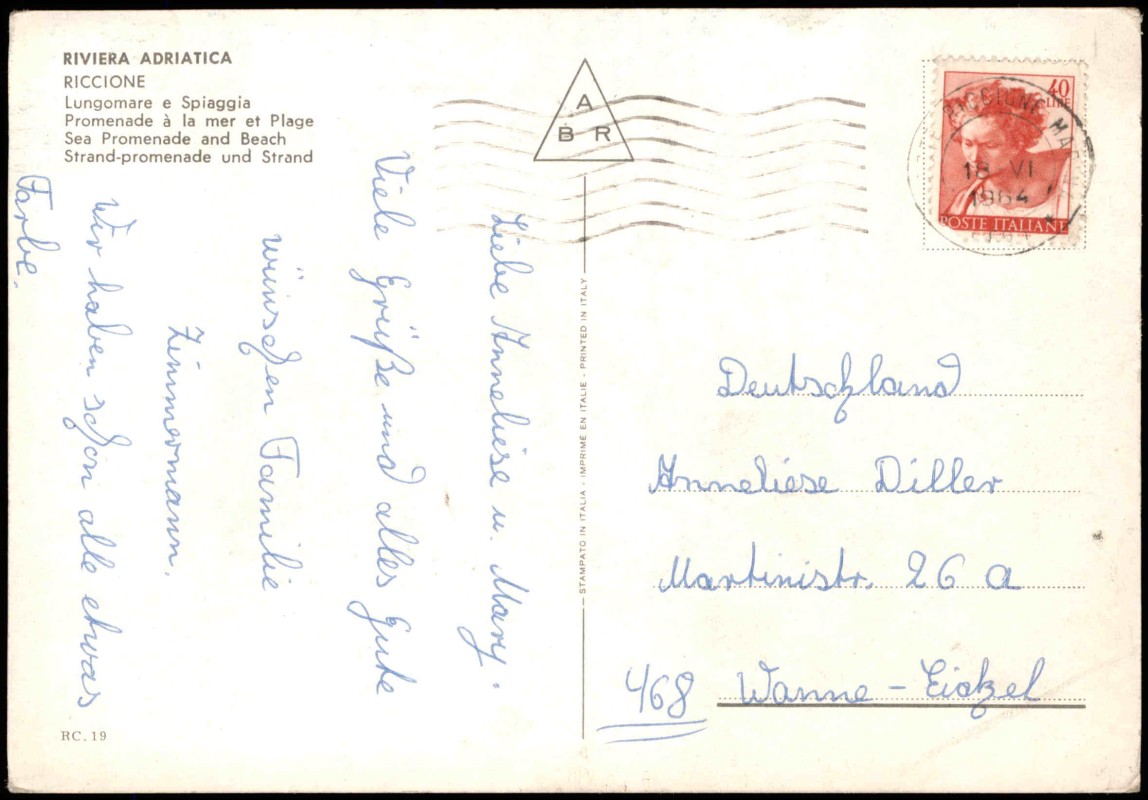 RIVIERA ADRIATICA
RICCIONE
Lungomare e Spiaggia
Promenade à la mer et Plage
Sea Promenade and Beach
Strand-promenade und Strand
A
B R
40
LIRE
RICCIONE MAR
18 VI
1964
POSTE ITALIANE
Liebe Anneliese u. Mary.
Viele Grüße und alles Gute
wünschen Familie
Zimmermann.
Wir haben schon alle etwas
Farbe.
STAMPATO IN ITALIA - IMPRIME EN ITALIE - PRINTED IN ITALY
Deutschland
Anneliese Diller
Martinistr. 26 a
468 Wanne-Eickel
RC. 19